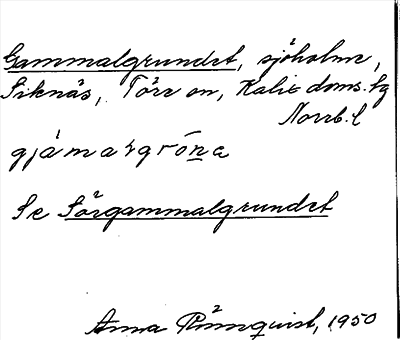 Gammalgrundet, sjöholme,
Siknäs, Töre sn, Kalix doms. hg
Norrb. l
Se Sörgammalgrundet
Anna Rönnquist, 1950